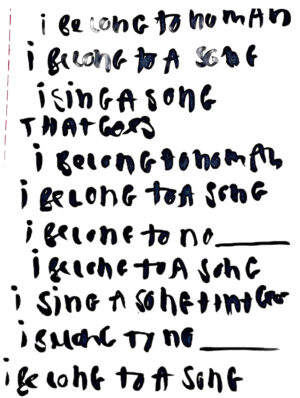 i BELONG to no mAn
i BELONG to A SONG
i SinG A SONG
THAt GOES
i BELONG to no mAn
i BELONG to A SONG
i BELONG to no_____
i BELONG to A SONG
i SinG A SONG tHAt GOES
i BELONG to no _____
i BELONG to A SONG